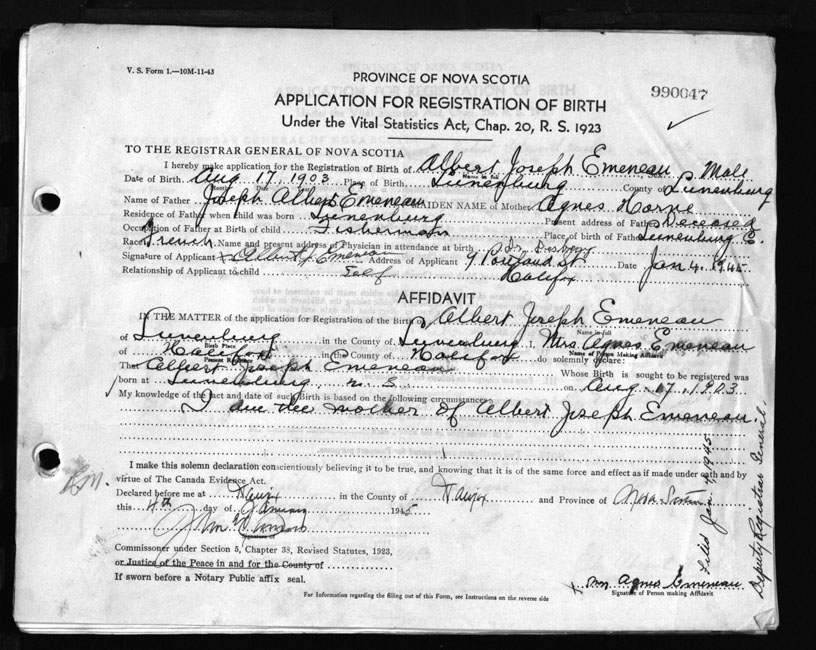 V. S. Form 1.—10M-11-43
PROVINCE OF NOVA SCOTIA
990047
APPLICATION FOR REGISTRATION OF BIRTH
Under the Vital Statistics Act, Chap. 20, R. S. 1923
TO THE REGISTRAR GENERAL OF NOVA SCOTIA
I hereby make application for the Registration of Birth of Albert Joseph Emeneau Male
Name in full
Date of Birth Aug 17, 1903 Place of Birth Lunenburg County of Lunenburg
Name of Father Joseph Albert Emeneau MAIDEN NAME of Mother Agnes Horne
Residence of Father when child was born Lunenburg Present address of Father Deceased
Occupation of Father at Birth of child Fisherman Place of birth of Father Lunenburg C.
Race French Name and present address of Physician in attendance at birth Dr.
Signature of Applicant x Albert J Emeneau Address of Applicant 9 Portland St Date Jan 4. 1945
Halifax
Relationship of Applicant to child Self
AFFIDAVIT
IN THE MATTER of the application for Registration of the Birth of Albert Joseph Emeneau
Name in full
of Lunenburg in the County of Lunenburg I, Mrs. Agnes Emeneau
Birth Place Name of Person Making Affidavit
of Halifax in the County of Halifax do solemnly declare:
Present Address
That Albert Joseph Emeneau Whose Birth is sought to be registered was
born at Lunenburg N. S on Aug. 17, 1903
My knowledge of the fact and date of such Birth is based on the following circumstances:
I am the mother of Albert Joseph Emeneau.
I make this solemn declaration conscientiously believing it to be true, and knowing that it is of the same force and effect as if made under oath and by
virtue of The Canada Evidence Act.
Declared before me at Halifax in the County of Halifax and Province of Nova Scotia
this 4th day of January 1945
Signature
Commissioner under Section 5, Chapter 38, Revised Statutes, 1923,
or Justice of the Peace in and for the County of
If sworn before a Notary Public affix seal.
x Mrs Agnes Emeneau
Signature of Person making Affidavit
For Information regarding the filling out of this Form, see Instructions on the reverse side
Filed Jan. 4, 1945
Deputy Registrar General.